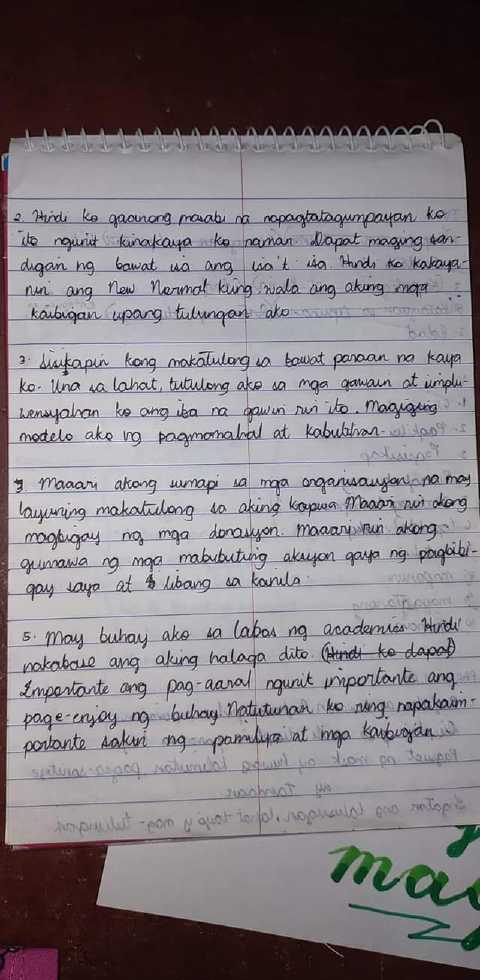 2. Hindi ko gaanong masabi na napagtatagumpayan ko
ito ngunit kinakaya ko naman. Dapat maging san-
digan ng bawat isa ang isa't isa. Hindi ko kakaya-
nin ang New Normal kung wala ang aking mga
kaibigan upang tulungan ako.
3. Sisikapin kong makatulong sa bawat paraan na kaya
ko. Una sa lahat, tutulong ako sa mga gawain at implu-
wensyahan ko ang iba na gawin rin ito. Magiging
modelo ako ng pagmamahal at kabutihan.
Maaari akong sumapi sa mga organisasyon na may
layuning makatulong sa aking kapwa. Maaari rin akong
magbigay ng mga donasyon. Maaari rin akong
gumawa ng mga mabubuting aksyon gaya ng pagbibi-
gay saya at libang sa kanila.
5. May buhay ako sa labas ng academics. Hindi
nakabase ang aking halaga dito. (Hindi ko dapat)
Importante ang pag-aaral ngunit importante ang
page-enjoy ng buhay. Natutunan ko ring napakaim-
portante sakin ng pamilya at mga kaibigan.
may